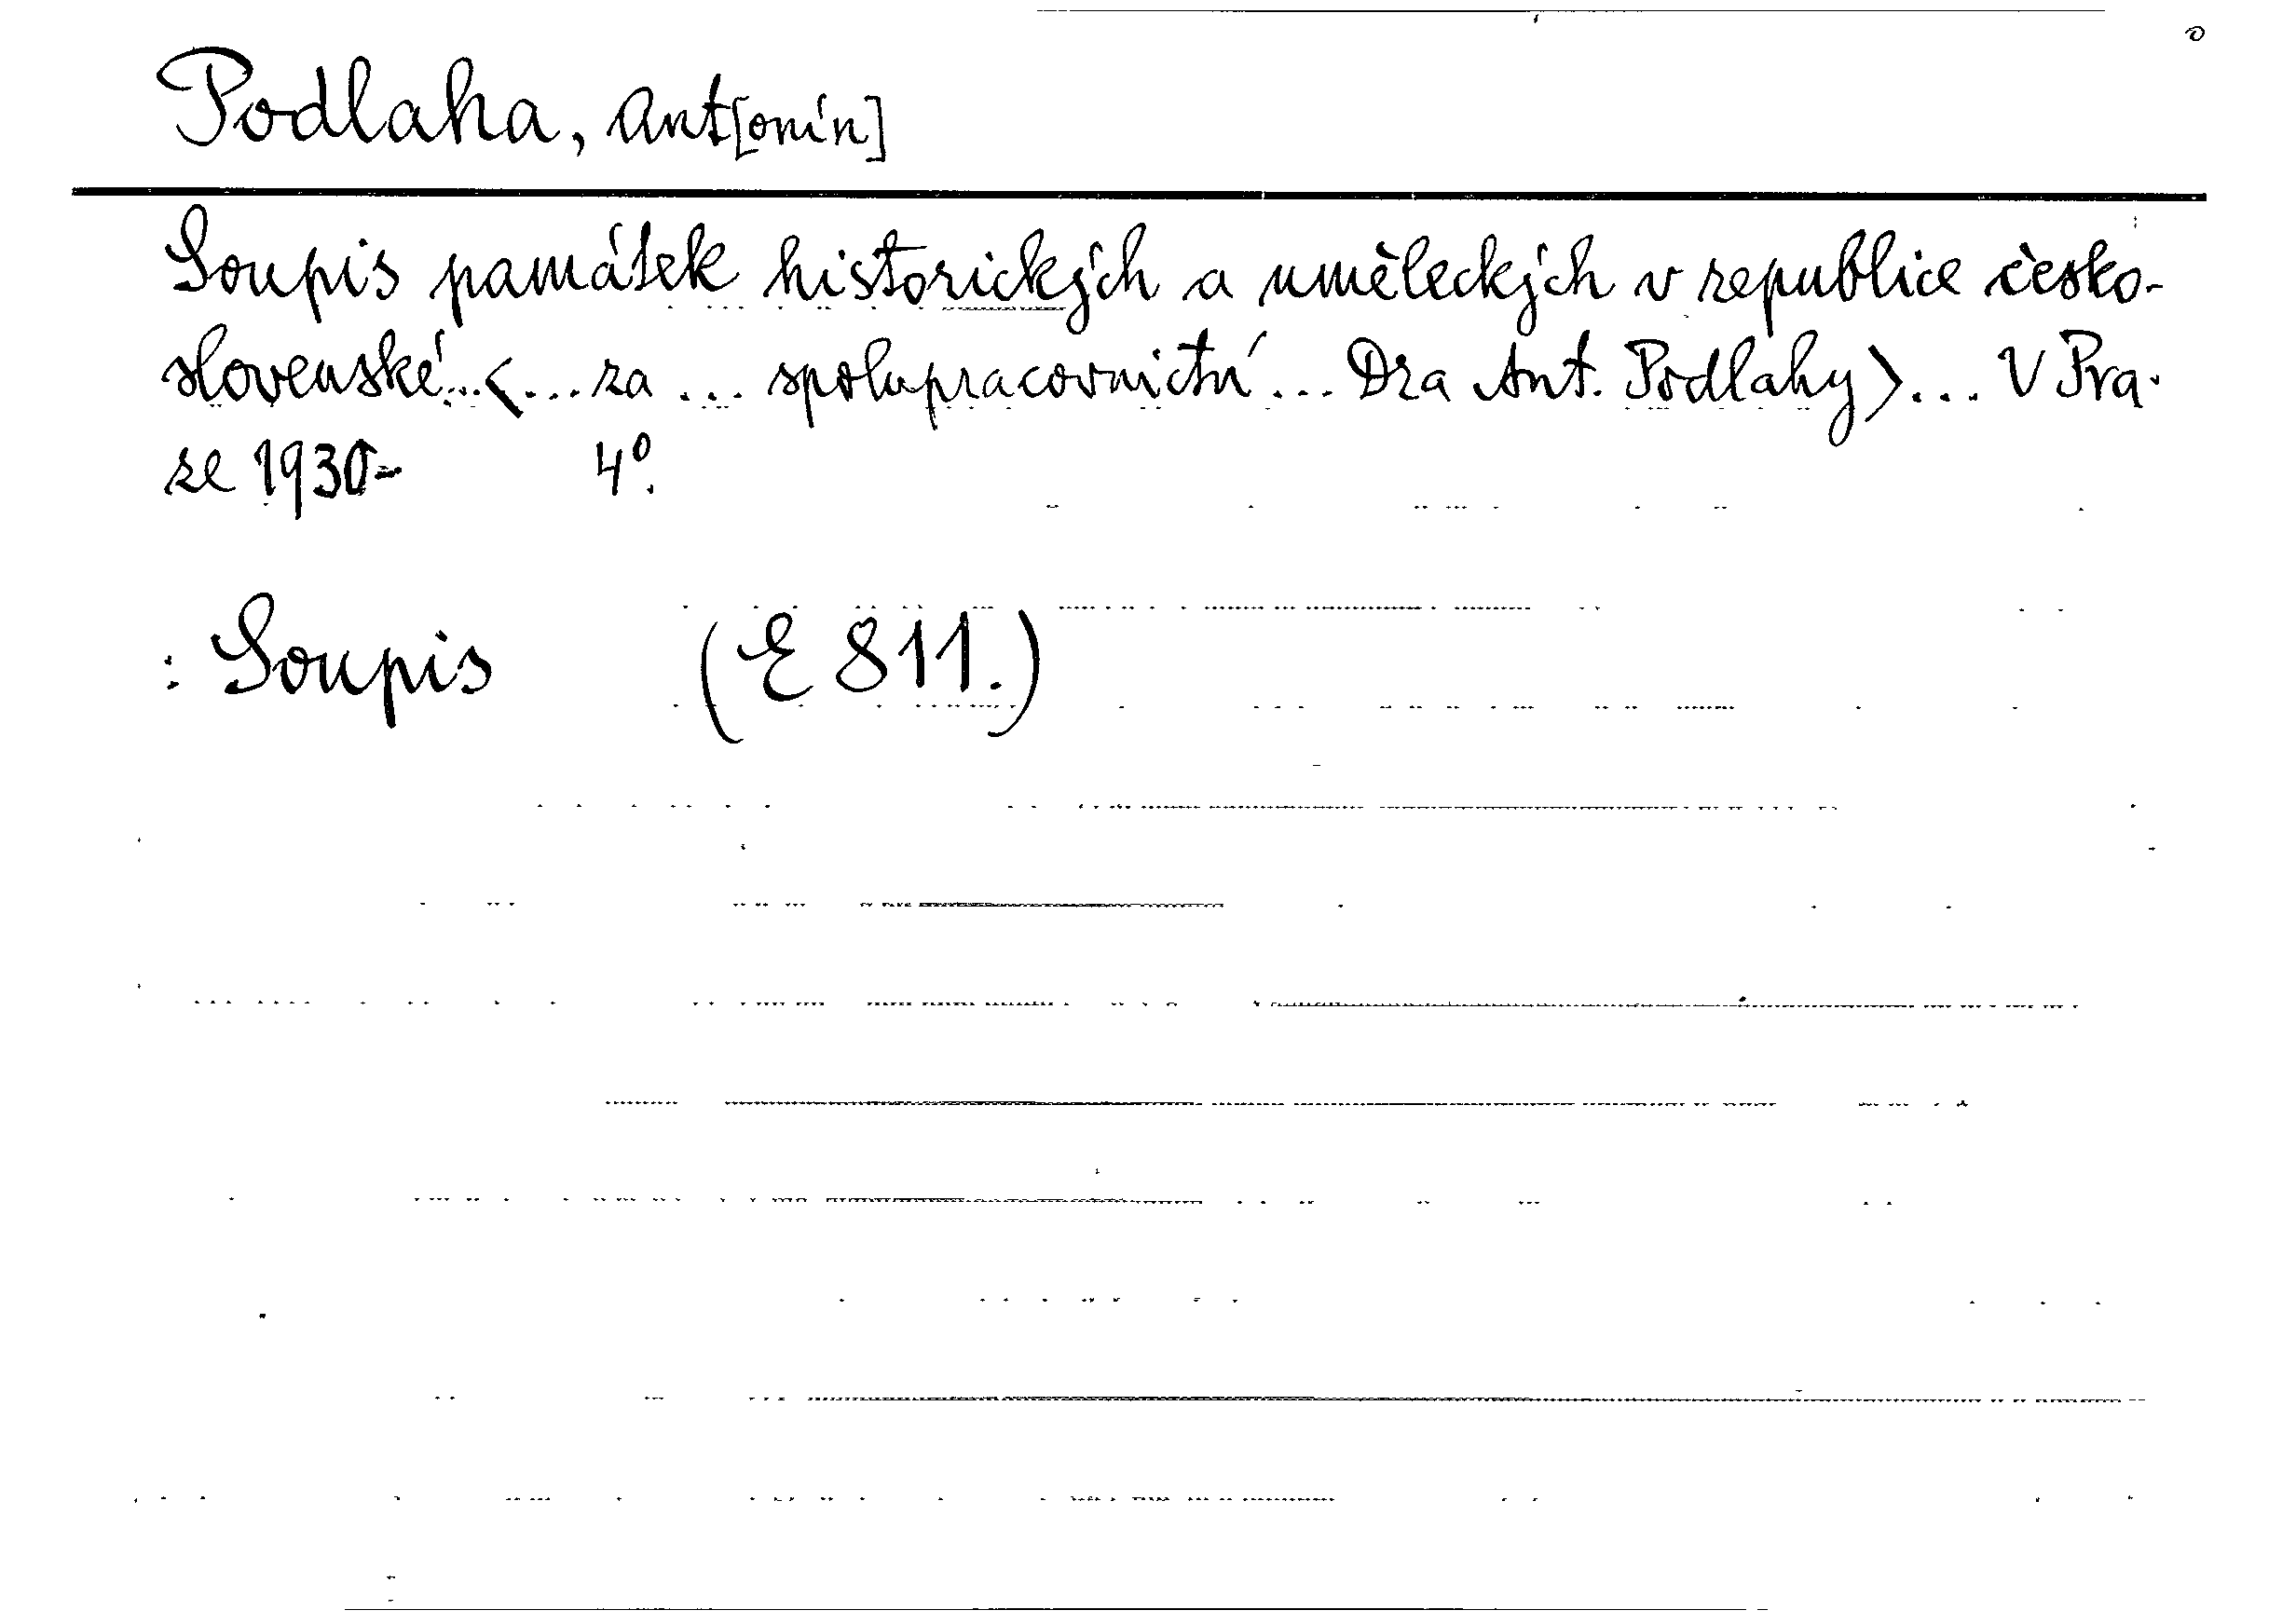 Podlaha, Ant[onín]
Soupis památek historických a uměleckých v republice česko-
slovenské...<...za ... spolupracovnictví... Dra Ant. Podlahy>... V Pra-
ze 1930- 4°.
: Soupis (E 811.)